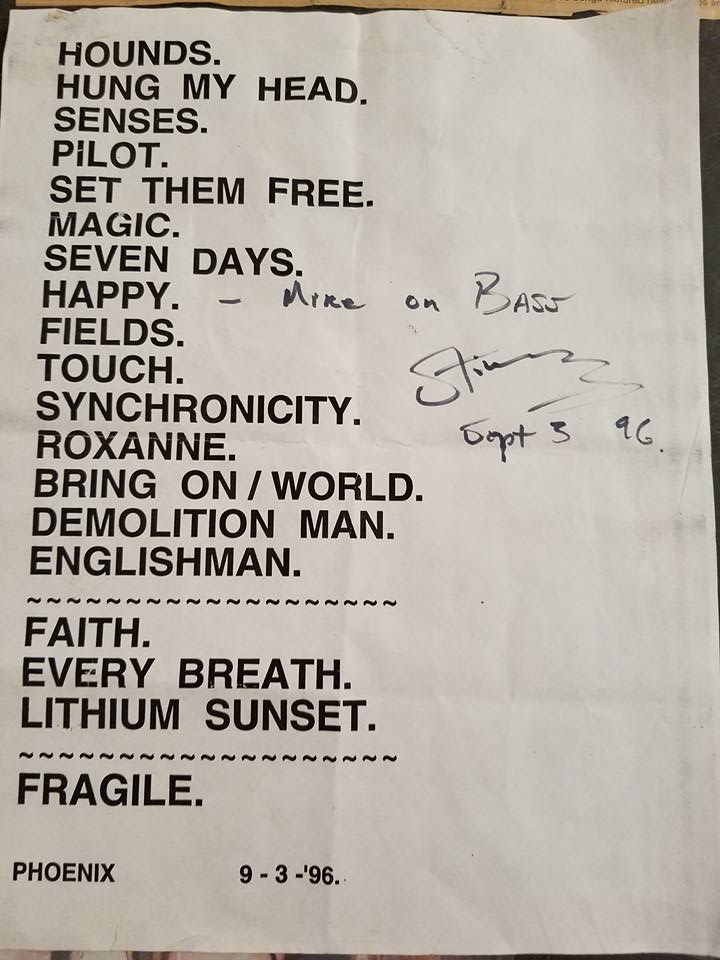 HOUNDS.
HUNG MY HEAD.
SENSES.
PiLOT.
SET THEM FREE.
MAGIC.
SEVEN DAYS.
HAPPY. – Mike on BASS
FIELDS.
TOUCH.
Sting
SYNCHRONICITY.
Sept 3 96.
ROXANNE.
BRING ON / WORLD.
DEMOLITION MAN.
ENGLISHMAN.
~~~~~~~~~~~~~~~~~~~
FAITH.
EVERY BREATH.
LITHIUM SUNSET.
~~~~~~~~~~~~~~~~~~~
FRAGILE.
PHOENIX 9 - 3 -'96.